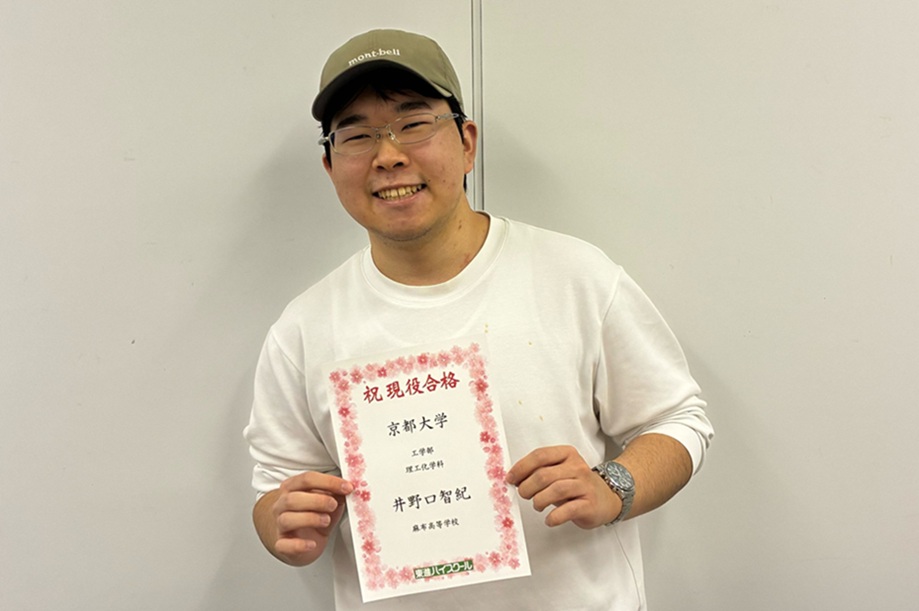 mont-bell
祝 現役合格
京都大学
工学部
理工化学科
井野口智紀
麻布高等学校
東進ハイスクール